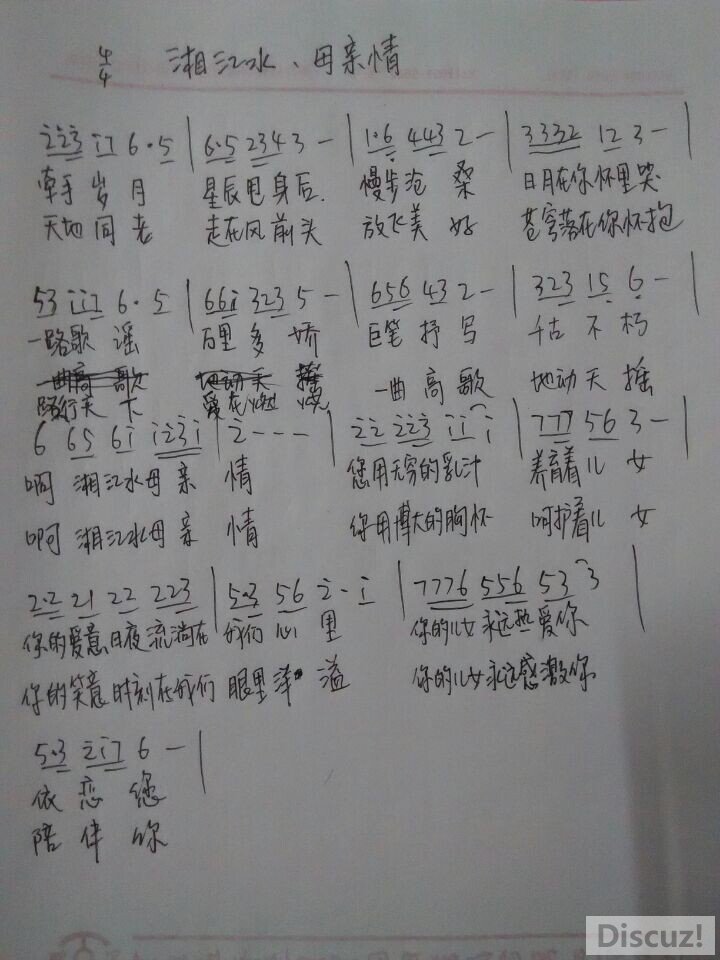 4/4 湘江水、母亲情
i̇2̇3̇ i7 6·5 | 6·5 2343 - | 1·6 443 2 - | 3332 12 3 - |
牵手岁月 星辰甩身后. 慢步沧桑 日月在你怀里哭
天地同老 走在风前头 放飞美好 苍穹落在你怀抱
53 ii7 6·5 | 66i 323 5 - | 656 43 2 - | 323 15 6 - |
一路歌谣 百里多娇 巨笔抒写 千古不朽
路行天下 爱在 一曲高歌 地动天摇
6 65 6i i23i | 2 - - - | 22 223 ii i | 777 56 3 - |
啊 湘江水母亲情 您用无穷的乳汁 养育着儿女
啊 湘江水母亲情 你用博大的胸怀 呵护着儿女
2·2 21 22 223 | 5·3 56 i·i | 7776 556 53 3 |
你的爱意日夜流淌在我们心里 你的儿女永远热爱你
你的笑意时刻在我们眼里洋溢 你的儿女永远感激你
5·3 2i7 6 - |
依恋您
陪伴你
Discuz!